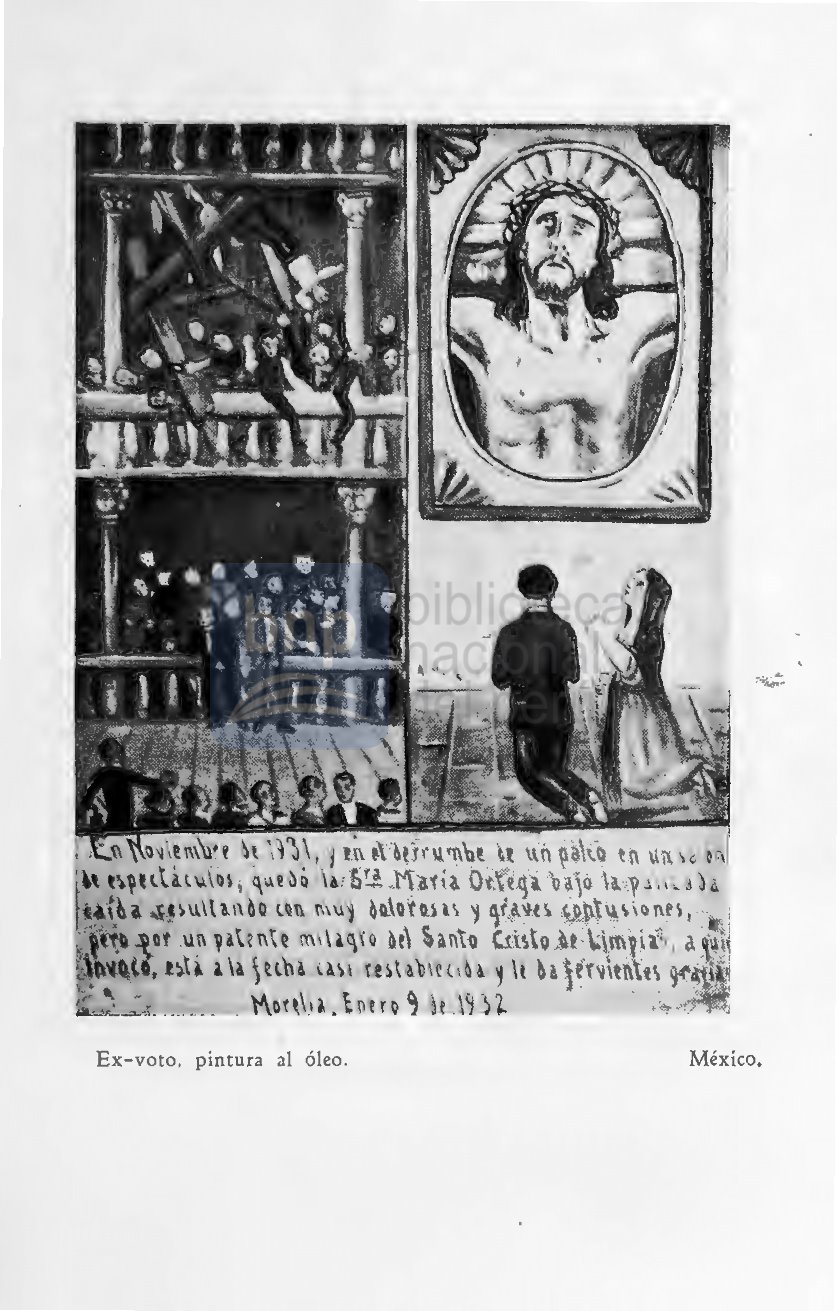 bnp
biblioteca
nacional
En Noviembre de 1931, y en el derrumbe de un palco en un salon
de espectáculos, quedó la Sra María Ortega bajo la
caída resultando con muy dolorosas y graves contusiones,
pero por un patente milagro del Santo Cristo de Limpias, a quien
invocó, está a la fecha casi restablecida y le da fervientes gracias
Morelia, Enero 9 de 1932
Ex-voto, pintura al óleo. México.